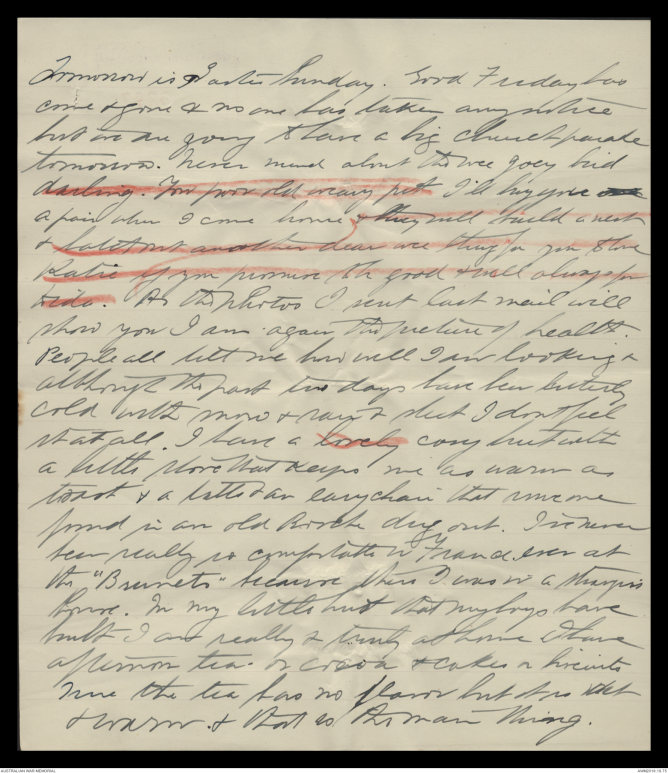 Tomorrow is Easter Sunday. Good Friday has
come & gone & no one has taken any notice
but we are going to have a big church parade
tomorrow. Never mind about the wee joey bird
darling. You poor old weary pet I'll buy you
a pair when I come home & they will build a nest
& hatch out another dear wee thing for you & love
Katie if you promise to be good & will always
. As the photos I sent last mail will
show you I am again the picture of health.
People all tell me how well I am looking &
although the past two days have been bitterly
cold with snow & rain & sleet I don't feel
it at all. I have a lovely cosy hut with
a little stove that keeps me as warm as
toast & a easychair that someone
found in an old Bosche dug out. I've never
been really so comfortable in France, even at
the "Brunets" because there I was in a strangers
house. In my little hut that my boys have
built I am really & truly at home I have
afternoon tea or cocoa & cakes or biscuits
True the tea has no flavor but it is wet
& warm & that is the main thing.
AUSTRALIAN WAR MEMORIAL